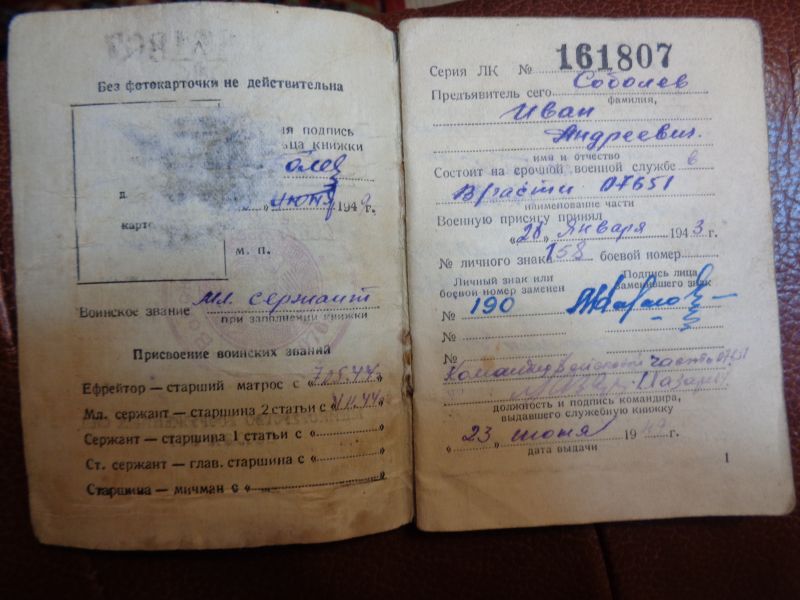 Без фотокарточки не действительна
подпись
книжки
июня 194 г.
д
карто
м. п.
Воинское звание Мл. сержант
при заполнении книжки
Присвоение воинских званий
Ефрейтор — старший матрос с
Мл. сержант — старшина 2 статьи с
Сержант — старшина 1 статьи с «
Ст. сержант — глав. старшина с «
Старшина — мичман с «
Серия ЛК № 161807
Предъявитель сего Соболев
фамилия,
Иван
Андреевич.
имя и отчество
Состоит на срочной военной службе в
В/части 07651
наименование части
Военную присягу принял
января 1943 г.
№ личного знака 158 боевой номер
Личный знак или
боевой номер заменен
Подпись лица
заменившего знак
№ 190
№
№
Командир Войсковой часть 07651
должность и подпись командира,
выдавшего служебную книжку
« 23 » июня 1949 г.
дата выдачи
1